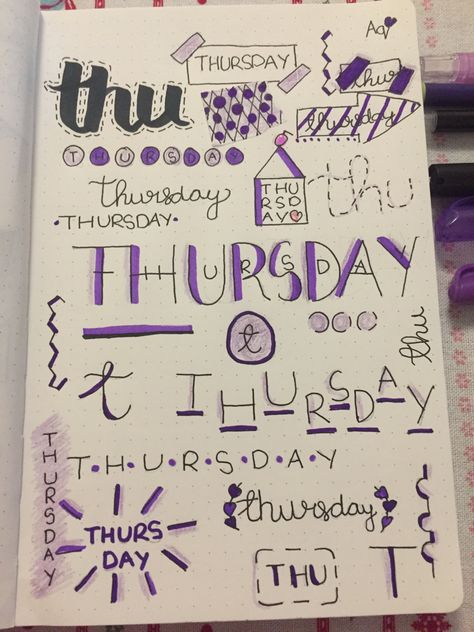 THURSDAY
thu
Aa
thu
thursday
THURSDAY
thursday
THU
RSD
AY
thu
•THURSDAY•
THURSDAY
t
thu
t
THURSDAY
THURSDAY
T•H•U•R•S•D•A•Y
THURS
DAY
thursday
THU
T